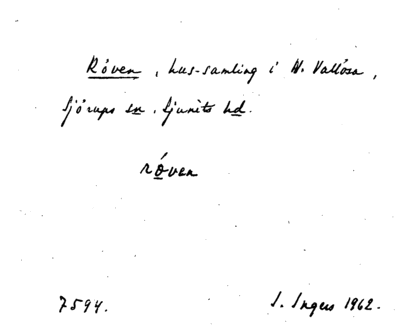 Röven, hus-samling i N. Vallösa,
Sjörups sn. Ljunits hd.
röven
7594.
I. Ingers 1962.